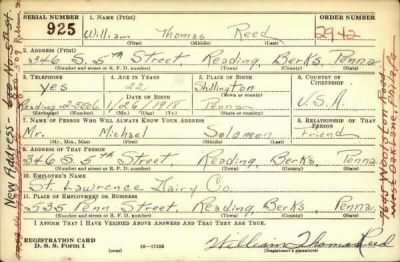 SERIAL NUMBER
925
1. NAME (Print)
William Thomas Reed
(First) (Middle) (Last)
ORDER NUMBER
2942
2. ADDRESS (Print)
346 S. 5th Street, Reading, Berks, Penna
(Number and street or R. F. D. number) (Town) (County) (State)
3. TELEPHONE
Yes
Reading 2-5506
4. AGE IN YEARS
22
DATE OF BIRTH
1/26/1918
5. PLACE OF BIRTH
Shillington
Penna
6. COUNTRY OF CITIZENSHIP
U.S.A.
7. NAME OF PERSON WHO WILL ALWAYS KNOW YOUR ADDRESS
Mr. Michael Solomon
(Mr., Mrs., Miss) (First) (Middle) (Last)
8. RELATIONSHIP OF THAT PERSON
Friend
9. ADDRESS OF THAT PERSON
346 S. 5th Street, Reading, Berks, Penna.
(Number and street or R. F. D. number) (Town) (County) (State)
10. EMPLOYER'S NAME
St. Lawrence Dairy Co.
11. PLACE OF EMPLOYMENT OR BUSINESS
535 Penn Street, Reading, Berks, Penna
(Number and street or R. F. D. number) (Town) (County) (State)
I AFFIRM THAT I HAVE VERIFIED ABOVE ANSWERS AND THAT THEY ARE TRUE.
REGISTRATION CARD
D. S. S. Form 1
(over)
16—17105
William Thomas Reed
(Registrant's signature)
New Address-